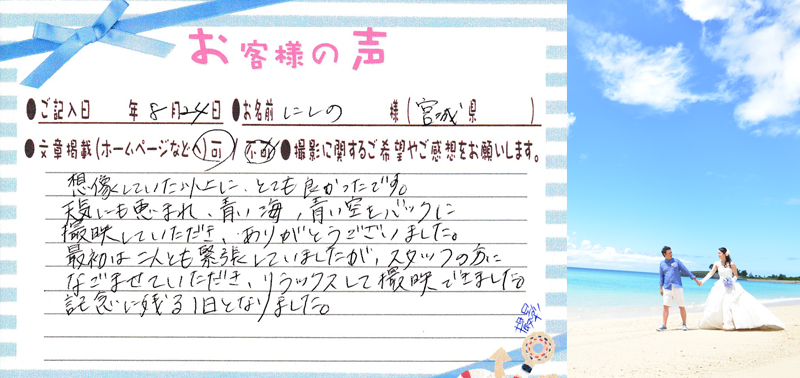 お客様の声
●ご記入日 年 8月24日 ●お名前 にしの 様(宮城県 )
●文章掲載(ホームページなどへ)可/不可 ●撮影に関するご希望やご感想をお願いします。
想像していた以上に、とても良かったです。
天気にも恵まれ、青い海、青い空をバックに
撮映していただき、ありがとうございました。
最初は二人とも緊張していましたが、スタッフの方に
なごませていただき、リラックスして撮映できました。
記念に残る1日となりました。